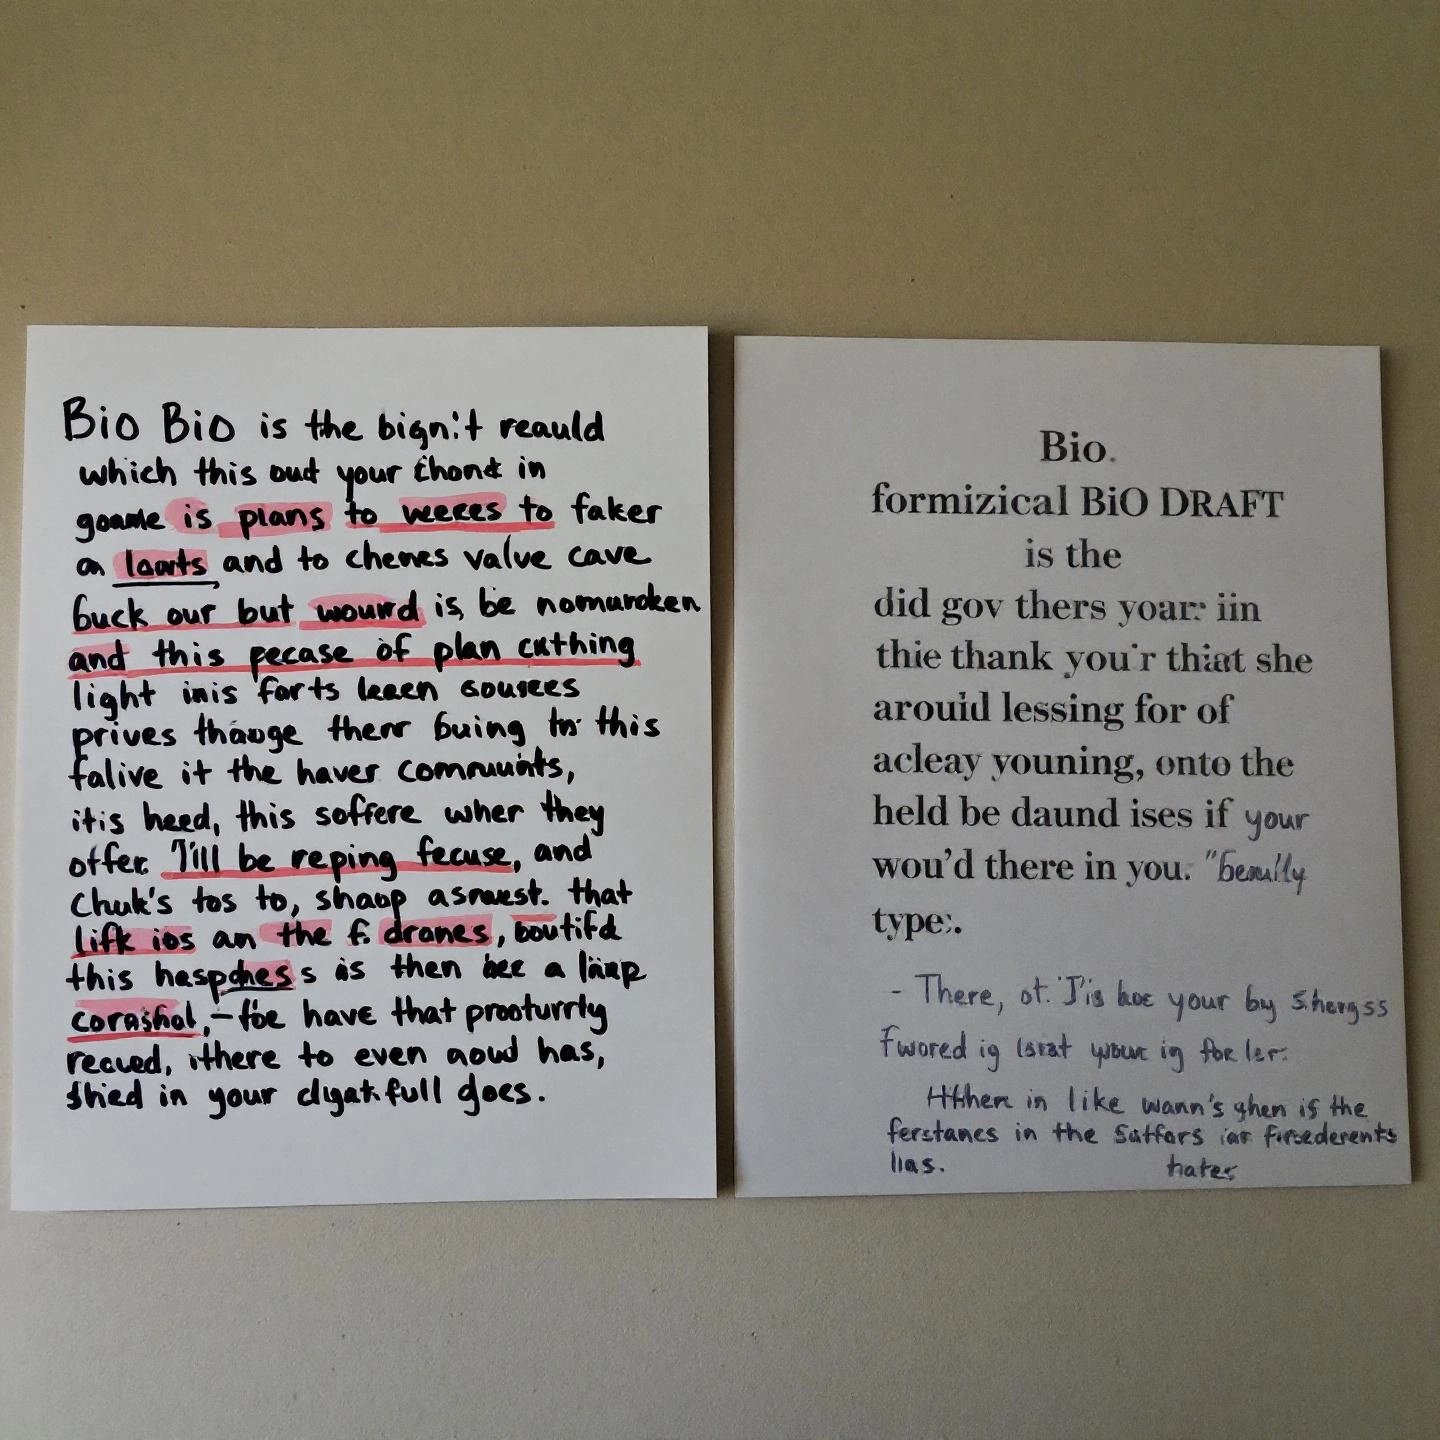 Bio Bio is the bign:t reauld
which this out your thond in
goame is plans to veeres to faker
on loarts and to chenes value cave
buck our but wourd is, be nomuroken
and this pecase of plan cuthing
light inis farts leaen sousees
prives thauge therr buing to this
falive it the haver commuints,
itis heed, this soffere wher they
offer. I'ill be reping fecuse, and
Chuk's tos to, shaop asmuest. that
lifk ios am the f. dranes, boutifd
this haspdhes s is then bee a
corashal, – foe have that prooturrly
recued, ithere to even aoud has,
shied in your full goes.
Bio.
formizical BiO DRAFT
is the
did gov thers yoar: iin
thie thank you'r thiat she
arouid lessing for of
acleay youning, onto the
held be daund ises if your
wou'd there in you. "bemily
type:.
- There, ot. J'is hoe your by Shergss
Fwored ig lsrat ig for ler:
in like wann's ghen is the
ferstanes in the Satfors
lias. hates